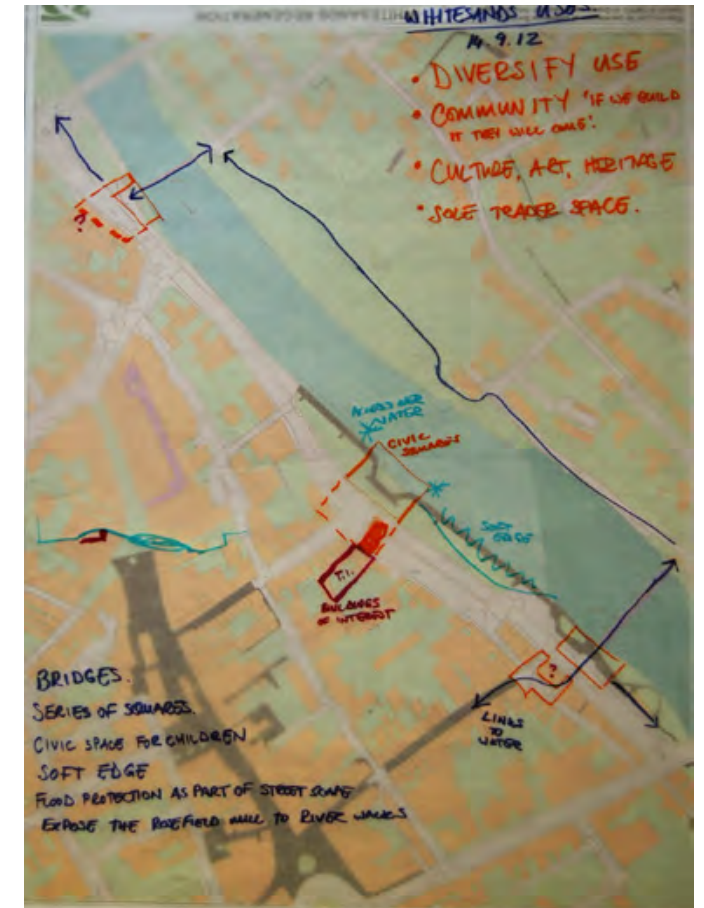 WHITESANDS REGENERATION
WHITESANDS USES.
14.9.12
• DIVERSIFY USE
• COMMUNITY 'IF WE BUILD
IT THEY WILL COME'.
• CULTURE, ART, HERITAGE
• SOLE TRADER SPACE.
?
WATER
CIVIC
SQUARES
SOFT
EDGE
T.I.
BUILDINGS
OF INTEREST
?
LINKS
TO
WATER
BRIDGES.
SERIES OF SQUARES.
CIVIC SPACE FOR CHILDREN
SOFT EDGE
FLOOD PROTECTION AS PART OF STREET SCAPE
EXPOSE THE ROSEFIELD MILL TO RIVER WALKS